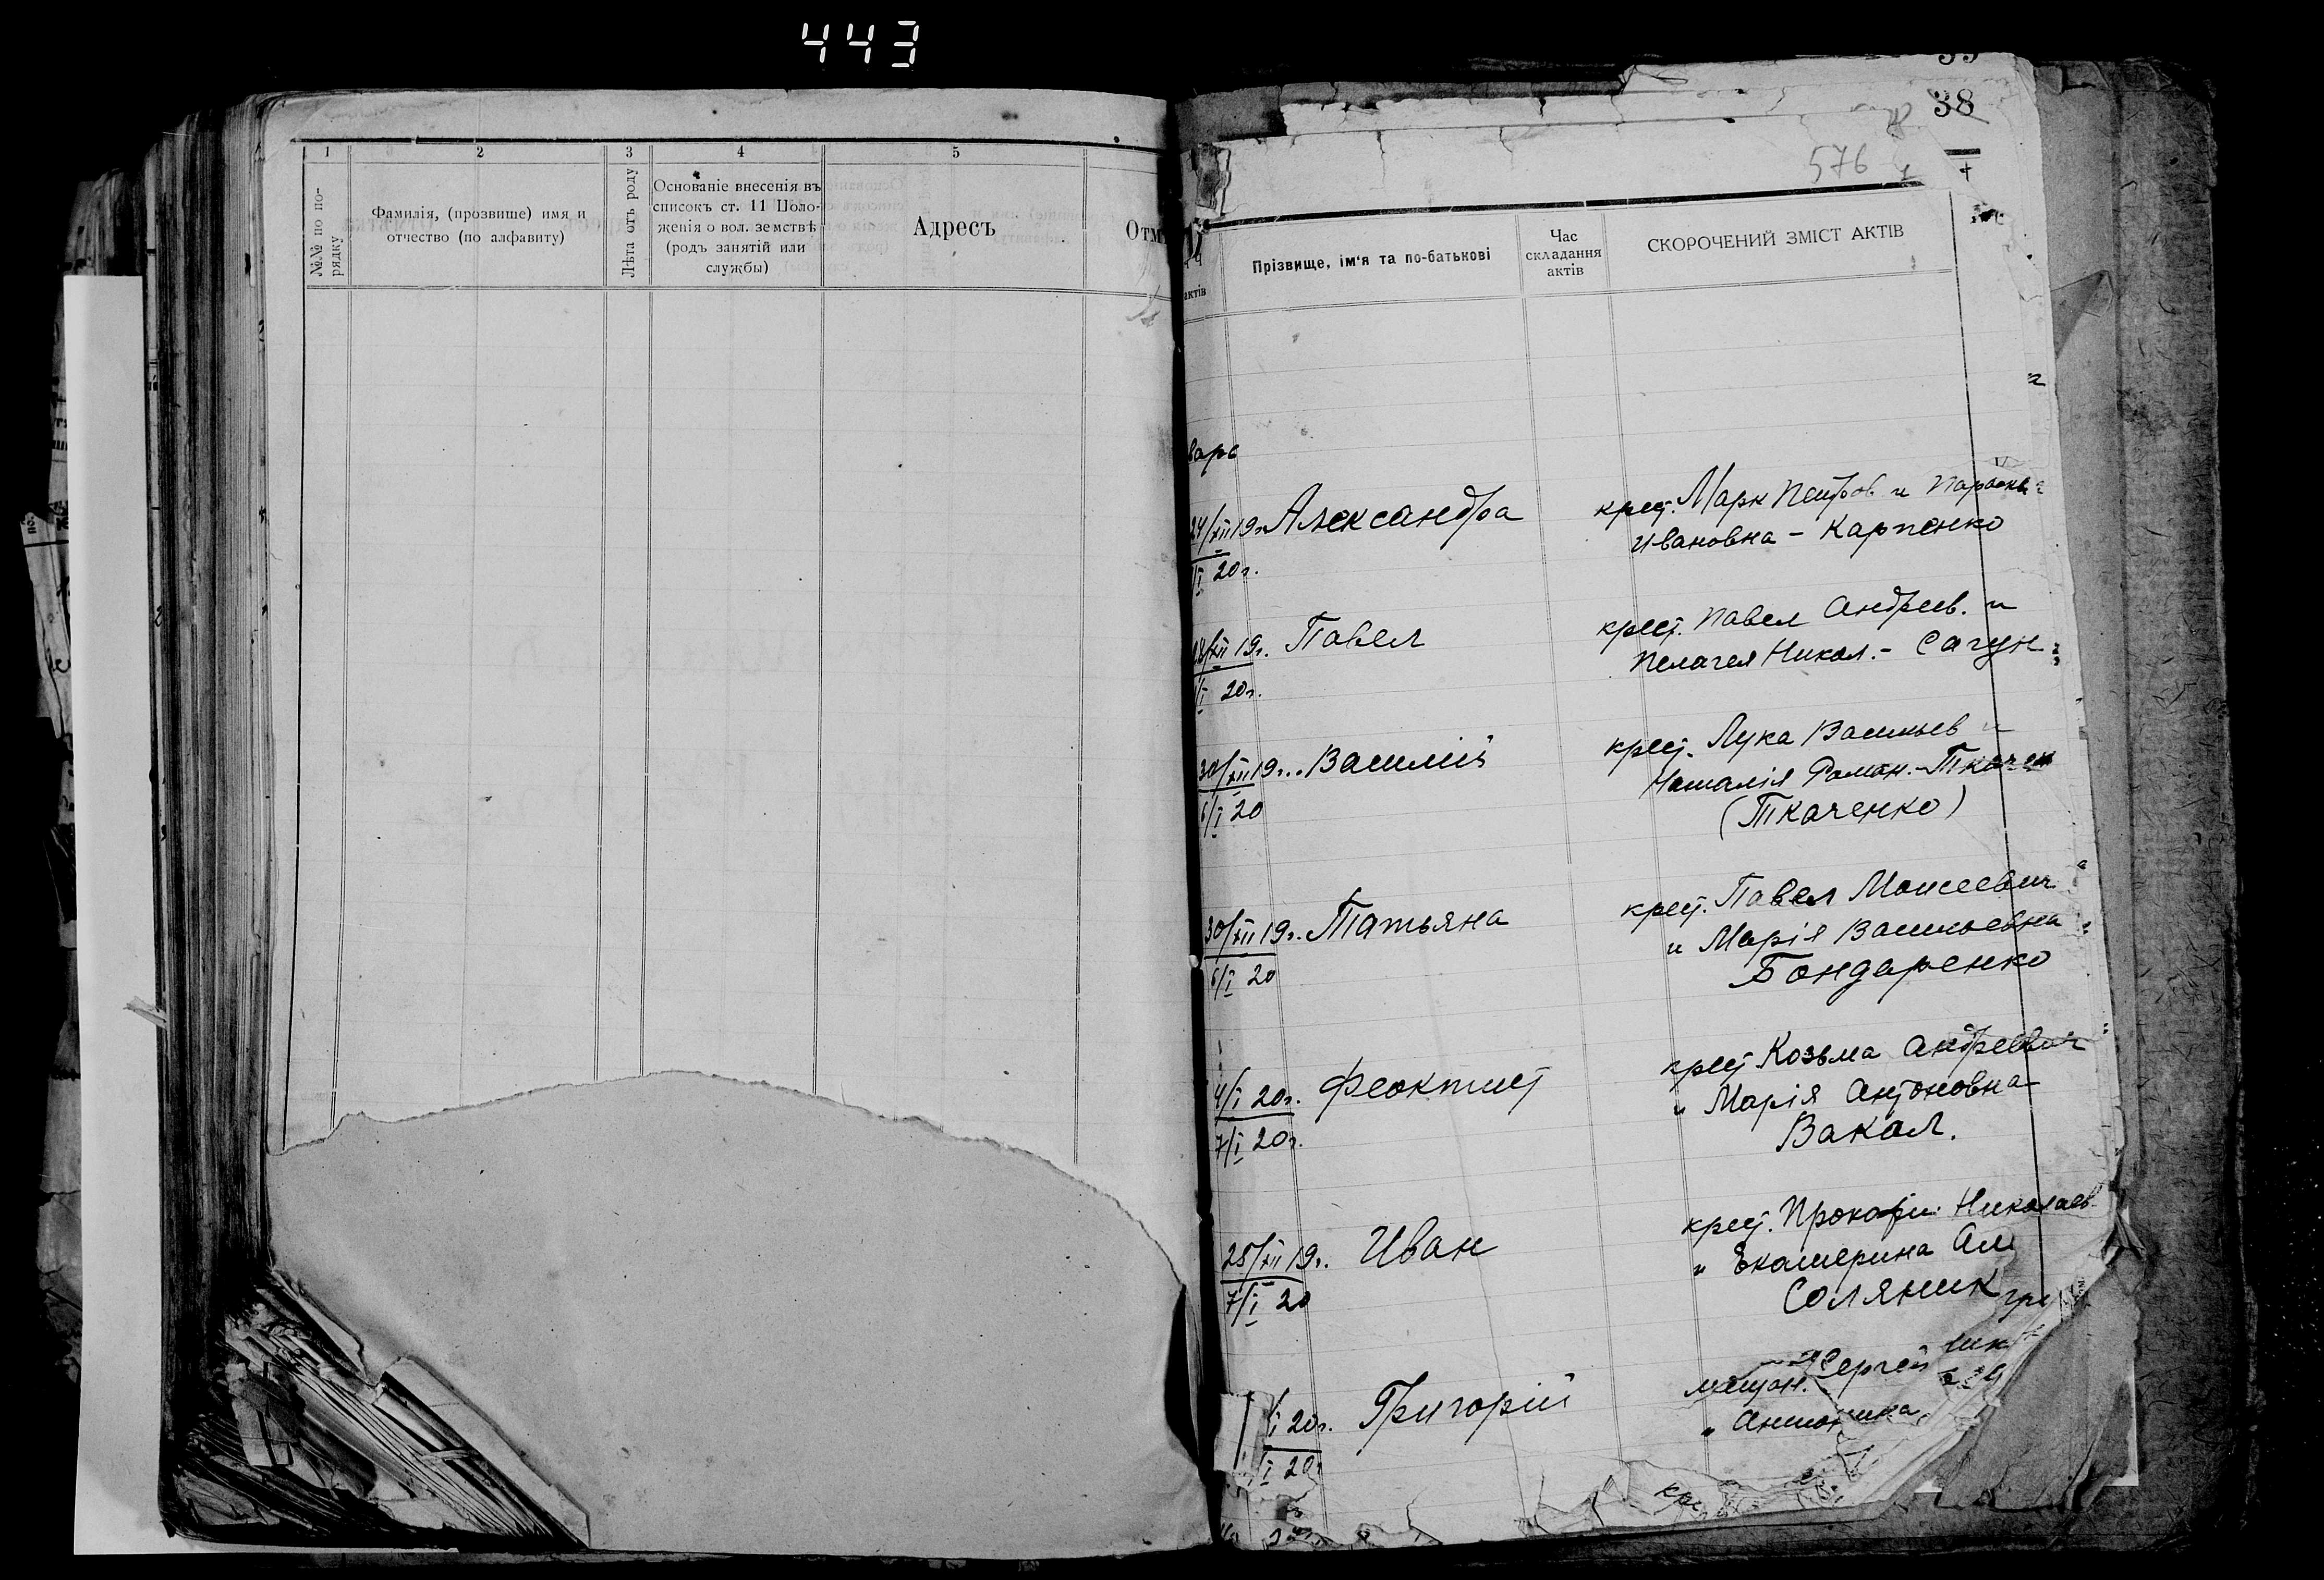 443
1
2
3
4
5
№№ по по-
рядку
Фамилія, (прозвище) имя и
отчество (по алфавиту)
Лѣта отъ роду
Основаніе внесенія въ
списокъ ст. 11 Поло-
женія о вол. земствѣ
(родъ занятій или
службы)
Адресъ
Отм
38
576
актів
Прізвище, ім'я та по-батькові
Час
складання
актів
СКОРОЧЕНИЙ ЗМІСТ АКТІВ
варь
24/XII 19г. Александра
крест. Марк Петров и
Ивановна - Карпенко
I 20г.
XII 19г. Павел
крест. Павел Андреев. и
Пелагея Никол. - Сагун
I 20г.
30/XII 19г. Василій
крест. Лука Васильев и
Наталія Роман. - Ткачен
6/I 20
(Ткаченко)
30/XII 19г. Татьяна
крест. Павел Моисеевич
и Марія Васильевна
6/I 20
Бондаренко
4/I 20г. Феоктист
крест Козьма Андреевич
и Марія Антоновна
7/I 20г.
Вакал.
25/XII 19г. Иван
крест. Прокофи. Николаев.
и Екатерина
7/I 20
Соляник
I 20г. Григорій
мещан. Сергей
и Антонина
I 20г
кре